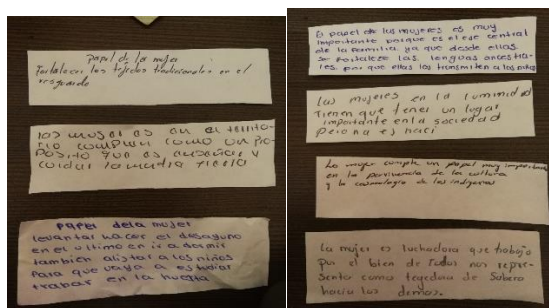 papel de la muja
Fortalecer los tejidos tradicionales en el
resguardo
los mugeres en el territo-
rio cumplen como un pro-
posito que es enseñar y
cuidar la madre tierra
Papel dela mujer
levantar hacer el desayuno
en el ultimo en ir a dormir
tambien alistar a los niños
Para que vaya a estudiar
trabar en la huerta
El papel de las mujeres es muy
importante porque es el eje central
de la familia, ya que desde ellas
se fortalece las lenguas ancestra-
les, por que ellas los transmiten a los
las mujeres en la comunidad
Tienen que tener un lugar
importante en la sociedad
pero no es haci
La mujer cumple un papel muy importante
en la pervivencia de la cultura
y la cosmologia de los indigenas
La mujer es luchadora que trabaja
por el bien de todos nos repre-
senta como tejedora de Saberes
hacia los demas.